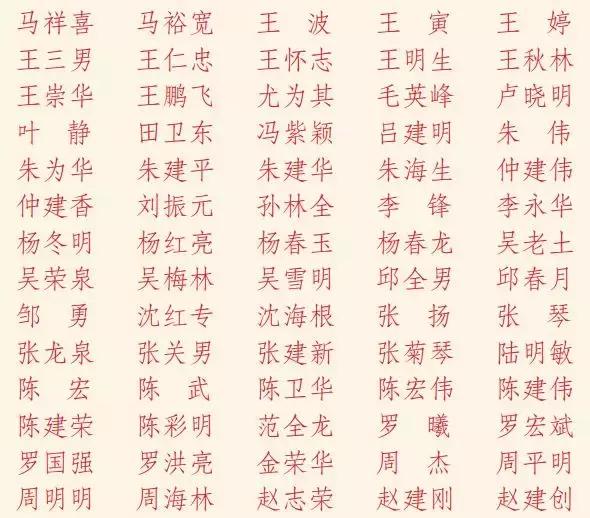 马祥喜 马裕宽 王　波 王　寅 王　婷
王三男 王仁忠 王怀志 王明生 王秋林
王崇华 王鹏飞 尤为其 毛英峰 卢晓明
叶　静 田卫东 冯紫颖 吕建明 朱　伟
朱为华 朱建平 朱建华 朱海生 仲建伟
仲建香 刘振元 孙林全 李　锋 李永华
杨冬明 杨红亮 杨春玉 杨春龙 吴老土
吴荣泉 吴梅林 吴雪明 邱全男 邱春月
邹　勇 沈红专 沈海根 张　扬 张　琴
张龙泉 张关男 张建新 张菊琴 陆明敏
陈　宏 陈　武 陈卫华 陈宏伟 陈建伟
陈建荣 陈彩明 范全龙 罗　曦 罗宏斌
罗国强 罗洪亮 金荣华 周　杰 周平明
周明明 周海林 赵志荣 赵建刚 赵建创